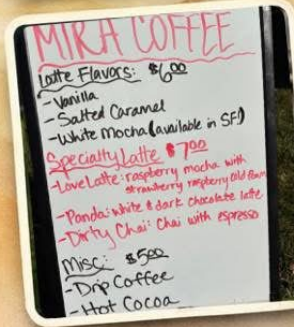 MIRA COFFEE
Latte Flavors: $600
-Vanilla
-Salted Caramel
-White Mocha (available in SF!)
Specialty Latte $700
-Love Latte: raspberry mocha with
strawberry raspberry cold foam
-Panda: white & dark chocolate latte
-Dirty Chai: Chai with espresso
Misc: $500
-Drip Coffee
-Hot Cocoa